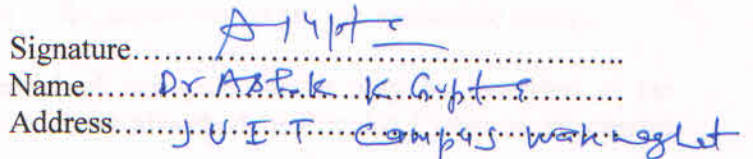 Signature.......A Gupta.......
Name.......Dr Ashok K Gupta.......
Address.......J U I T Campus Waknaghat